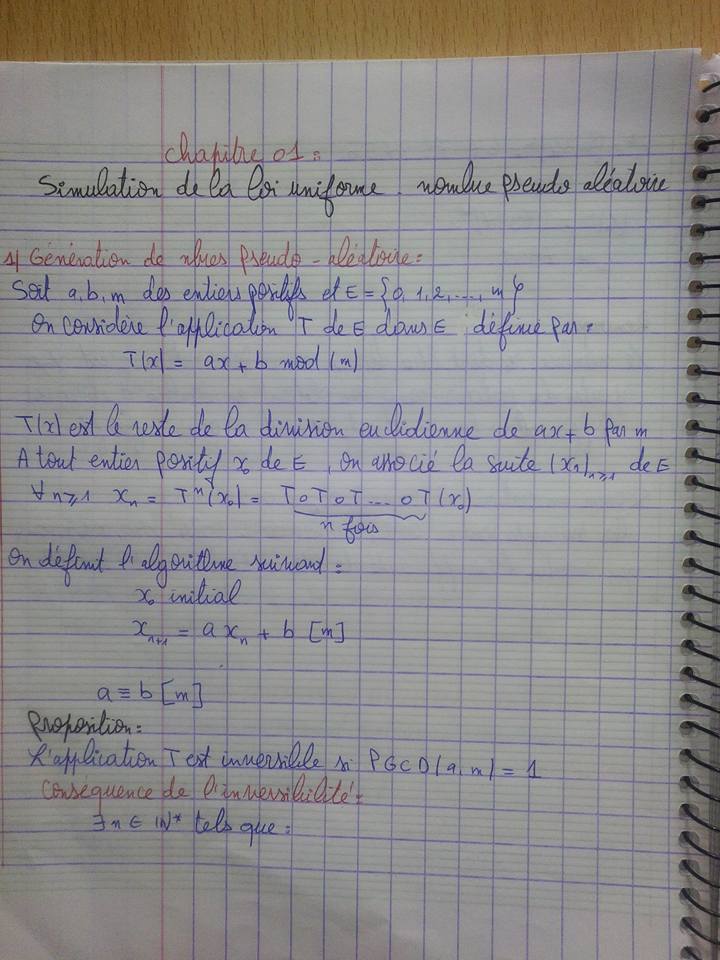 Chapitre 01 :
Simulation de la loi uniforme. nombre pseudo aléatoire
1/ Génération de nbres pseudo-aléatoire :
Soit a, b, m des entiers positifs et E = {0, 1, 2, ..., m}
On considère l'application T de E dans E définie par :
T(x) = ax + b mod (m)
T(x) est le reste de la division euclidienne de ax + b par m
A tout entier positif x₀ de E, on associé la suite (xₙ)ₙ≥₁ de E
∀ n ≥ 1 xₙ = Tⁿ(x₀) = T o T o T ... o T (x₀)
n fois
On définit l'algorithme suivant :
x₀ initial
xₙ₊₁ = a xₙ + b [m]
a ≡ b [m]
Proposition :
L'application T est inversible si PGCD(a, m) = 1
Conséquence de l'inversibilité :
∃ n ∈ IN* tels que :